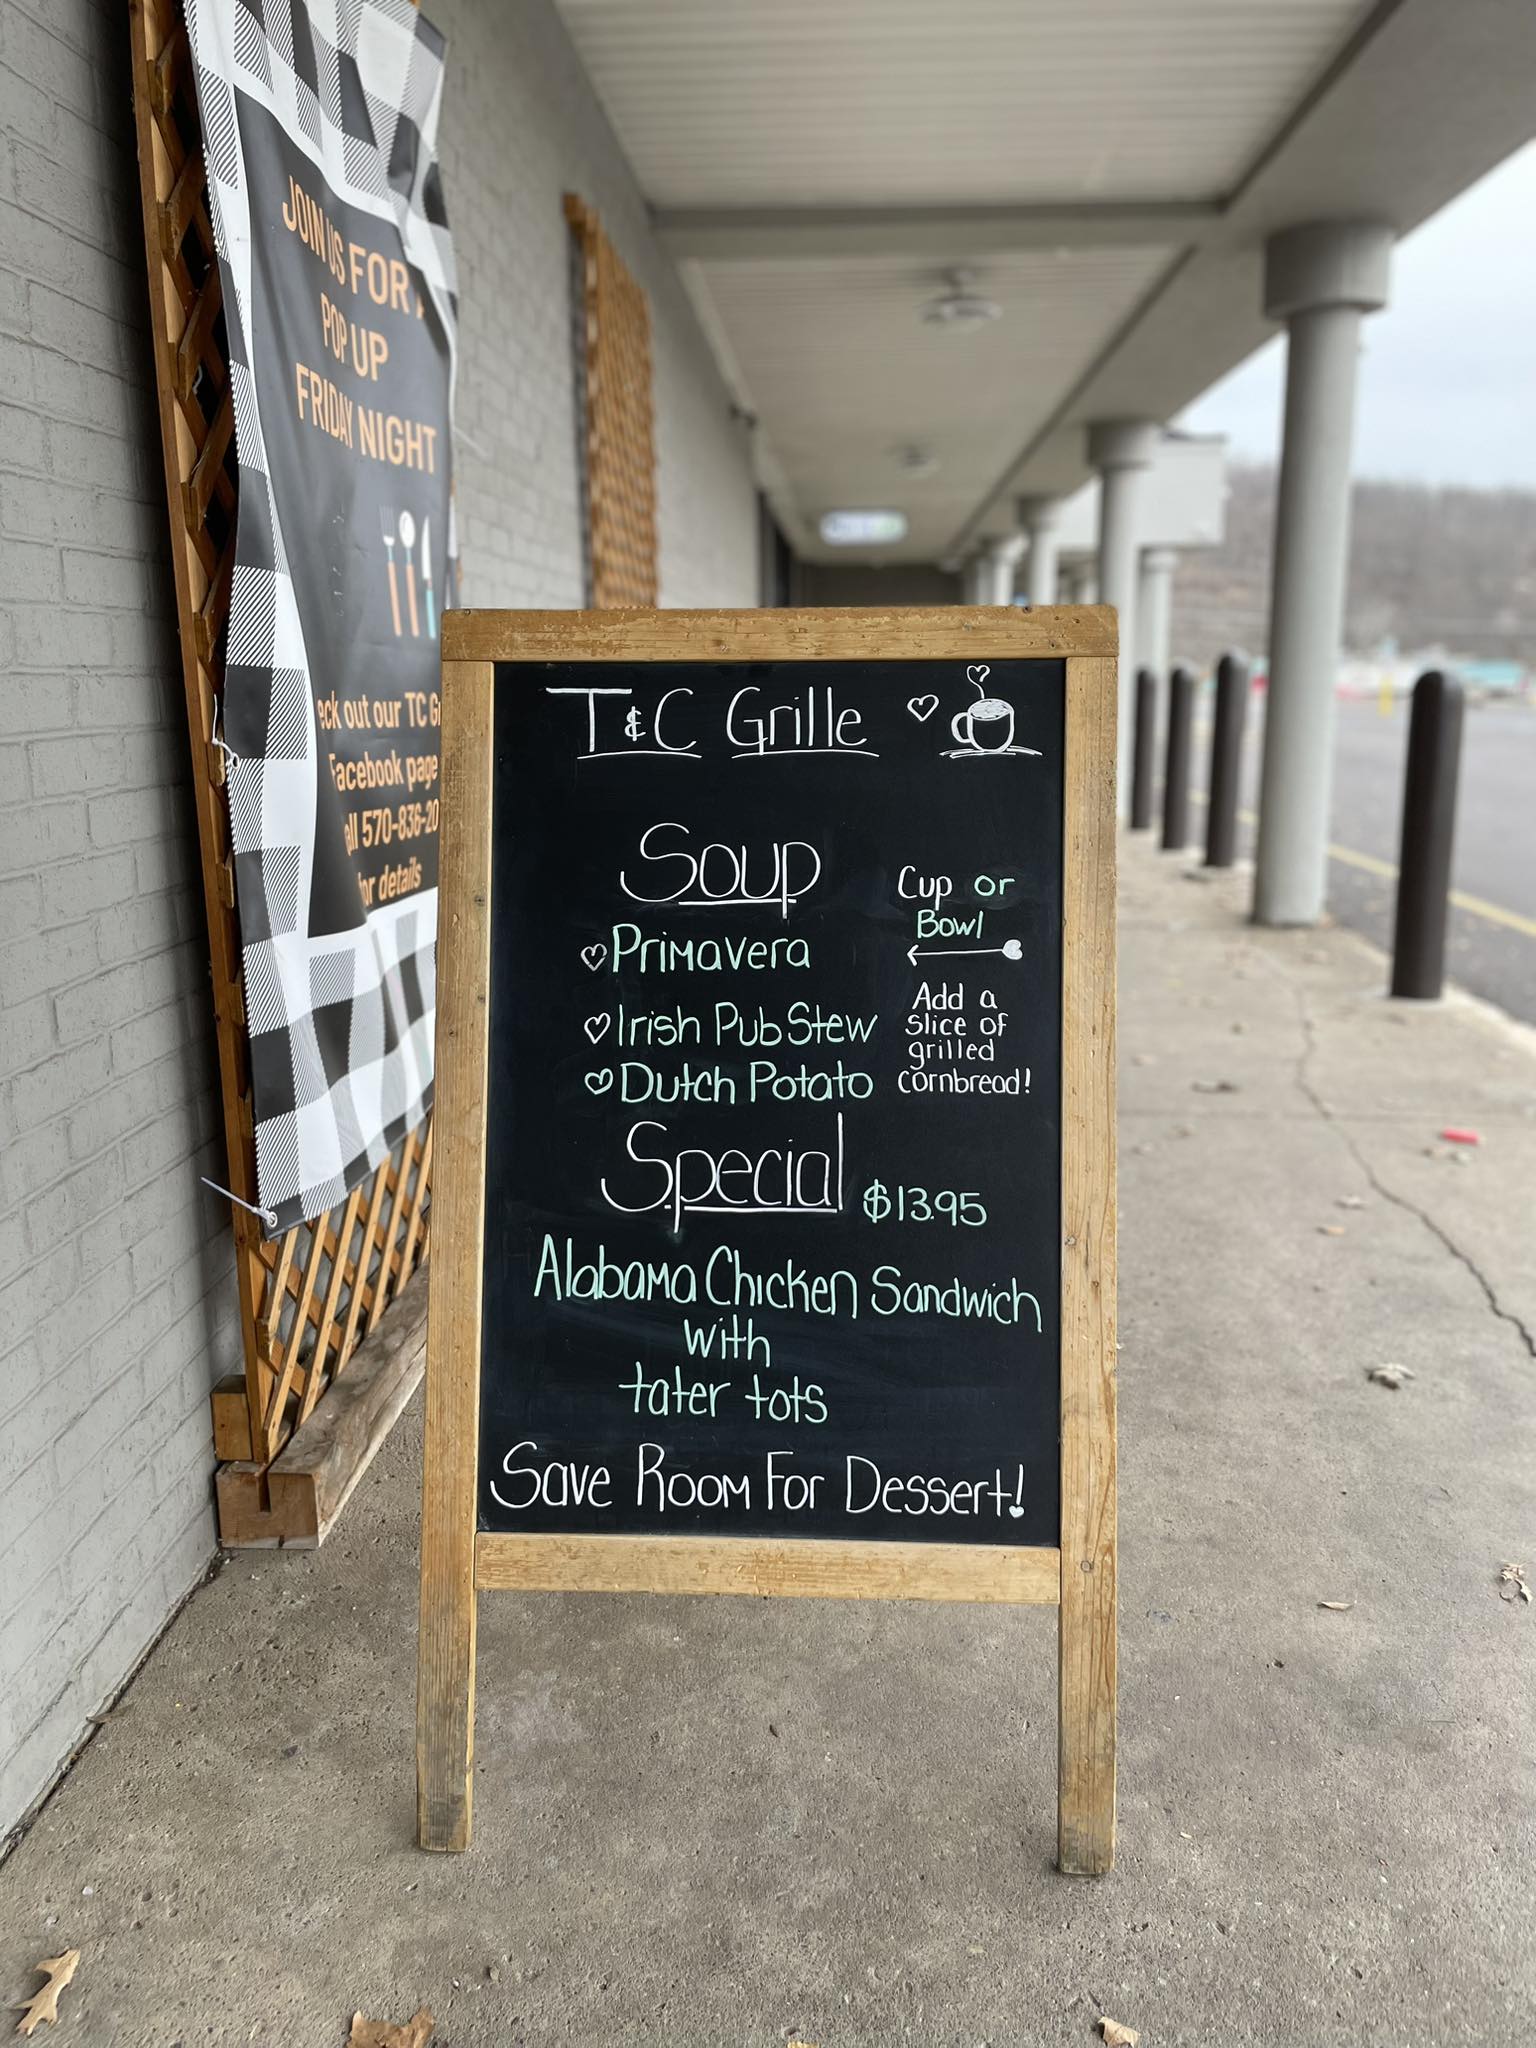 JOIN US FOR A
POP UP
FRIDAY NIGHT
eck out our TC G
Facebook page
all 570-836-20
for details
T&C Grille
Soup
Primavera
Irish Pub Stew
Dutch Potato
Cup or
Bowl
Add a
slice of
grilled
cornbread!
Special $13.95
Alabama Chicken Sandwich
with
tater tots
Save Room For Dessert!